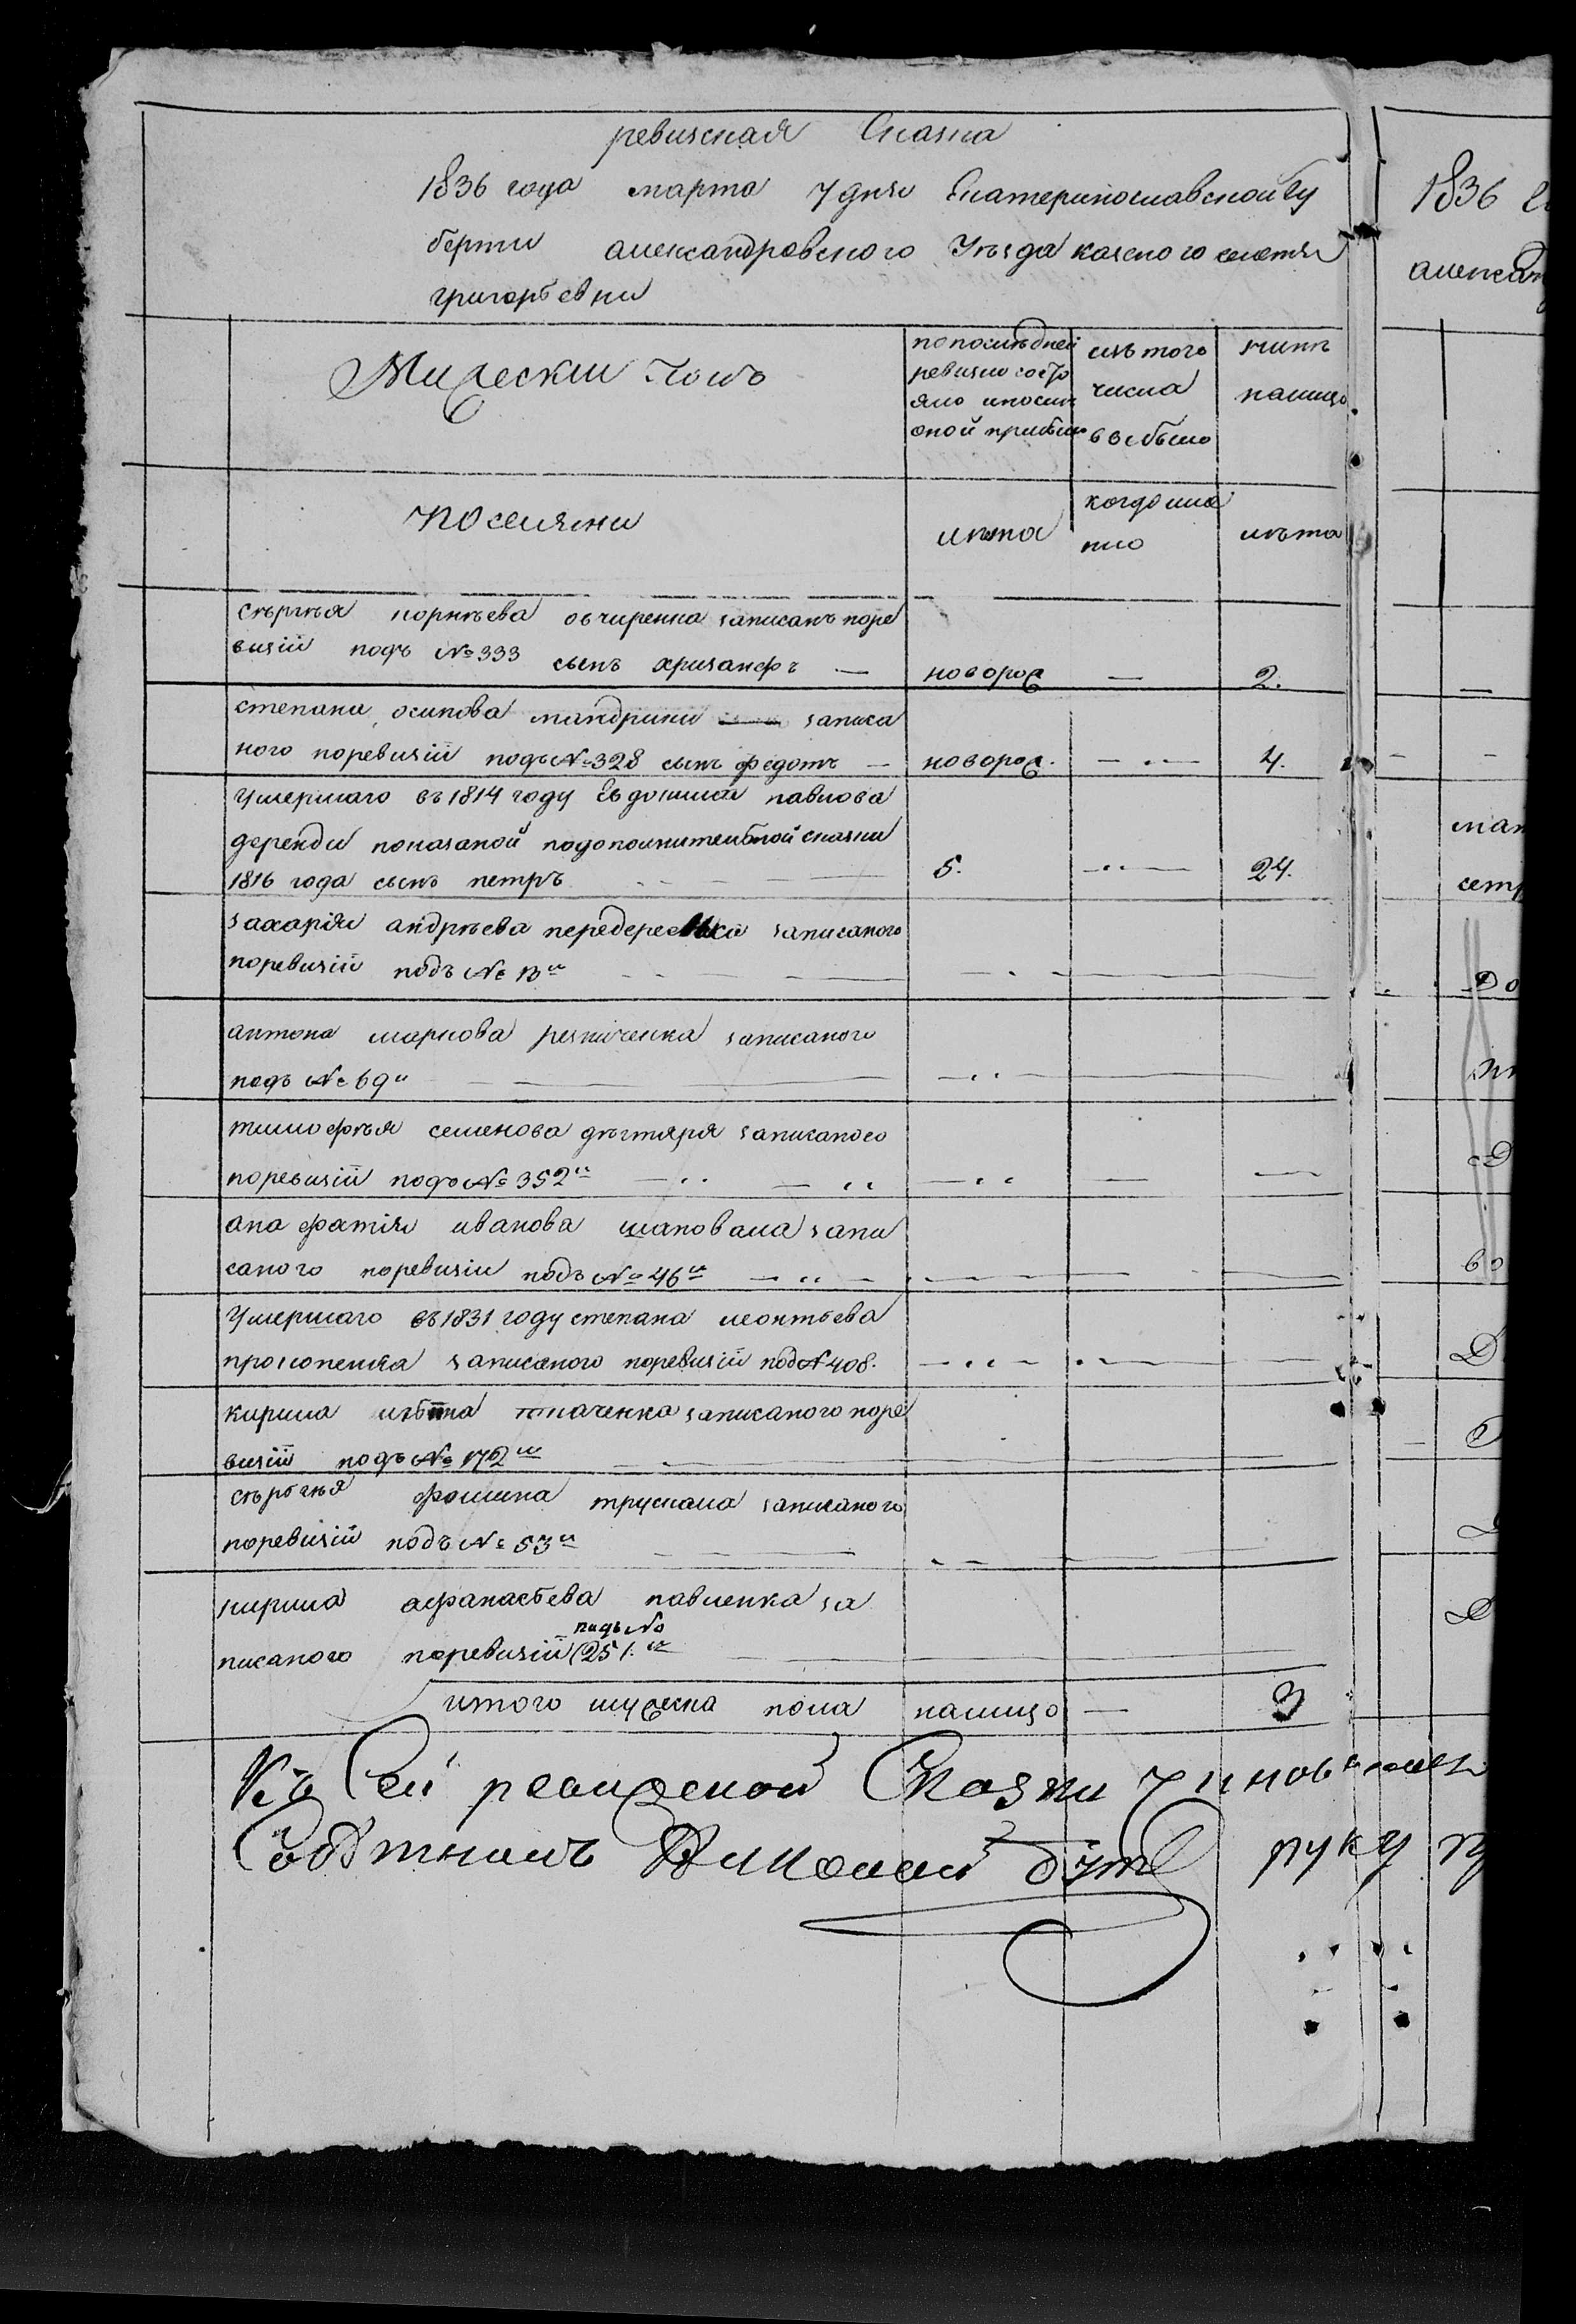 ревизская Сказка
1836 года марта 7 дня Екатеринославской Гу
бернии александровского Уезда казеного селения
григорьевки
Мужескии Полъ
по последней
ревизии состо
яло и после
оной прибыло
изъ того
числа
выбыло
ныне
налицо
поселяни
лета
когда име
нно
лета
сергея корнѣева овчиренка записанъ поре
визiи подъ № 333 сынъ хрисанфъ — новорож — 2.
степана осипова мандрики записа
ного поревизiи подъ № 328 сынъ федотъ — новорож. — 4.
Умершаго въ 1814 году Евдокима павлова
деренди показаной подополнительной сказки
1816 года сынъ петръ 5. — 24.
захарiя андрѣева записаного
поревизiи подъ № 13й
антона маркова резниченка записаного
подъ № 69й
тимофѣя семенова дѣгтяря записаного
поревизiи подъ № 352й
анафатiя иванова шаповала запи
саного поревизiи подъ № 46й
Умершаго въ 1831 году степана леонтьева
прокопенка записаного поревизiи под № 408.
кирила ткаченка записаного поре
визiи подъ № 172й
сѣргѣя фомина трускала записаного
поревизiи подъ № 53й
кирила афанасьева павленка за
писаного поревизiи подъ № 251й
итого мужеска пола налицо — 3
Къ сей ревизской Сказки
Николай бут руку
1836
александ